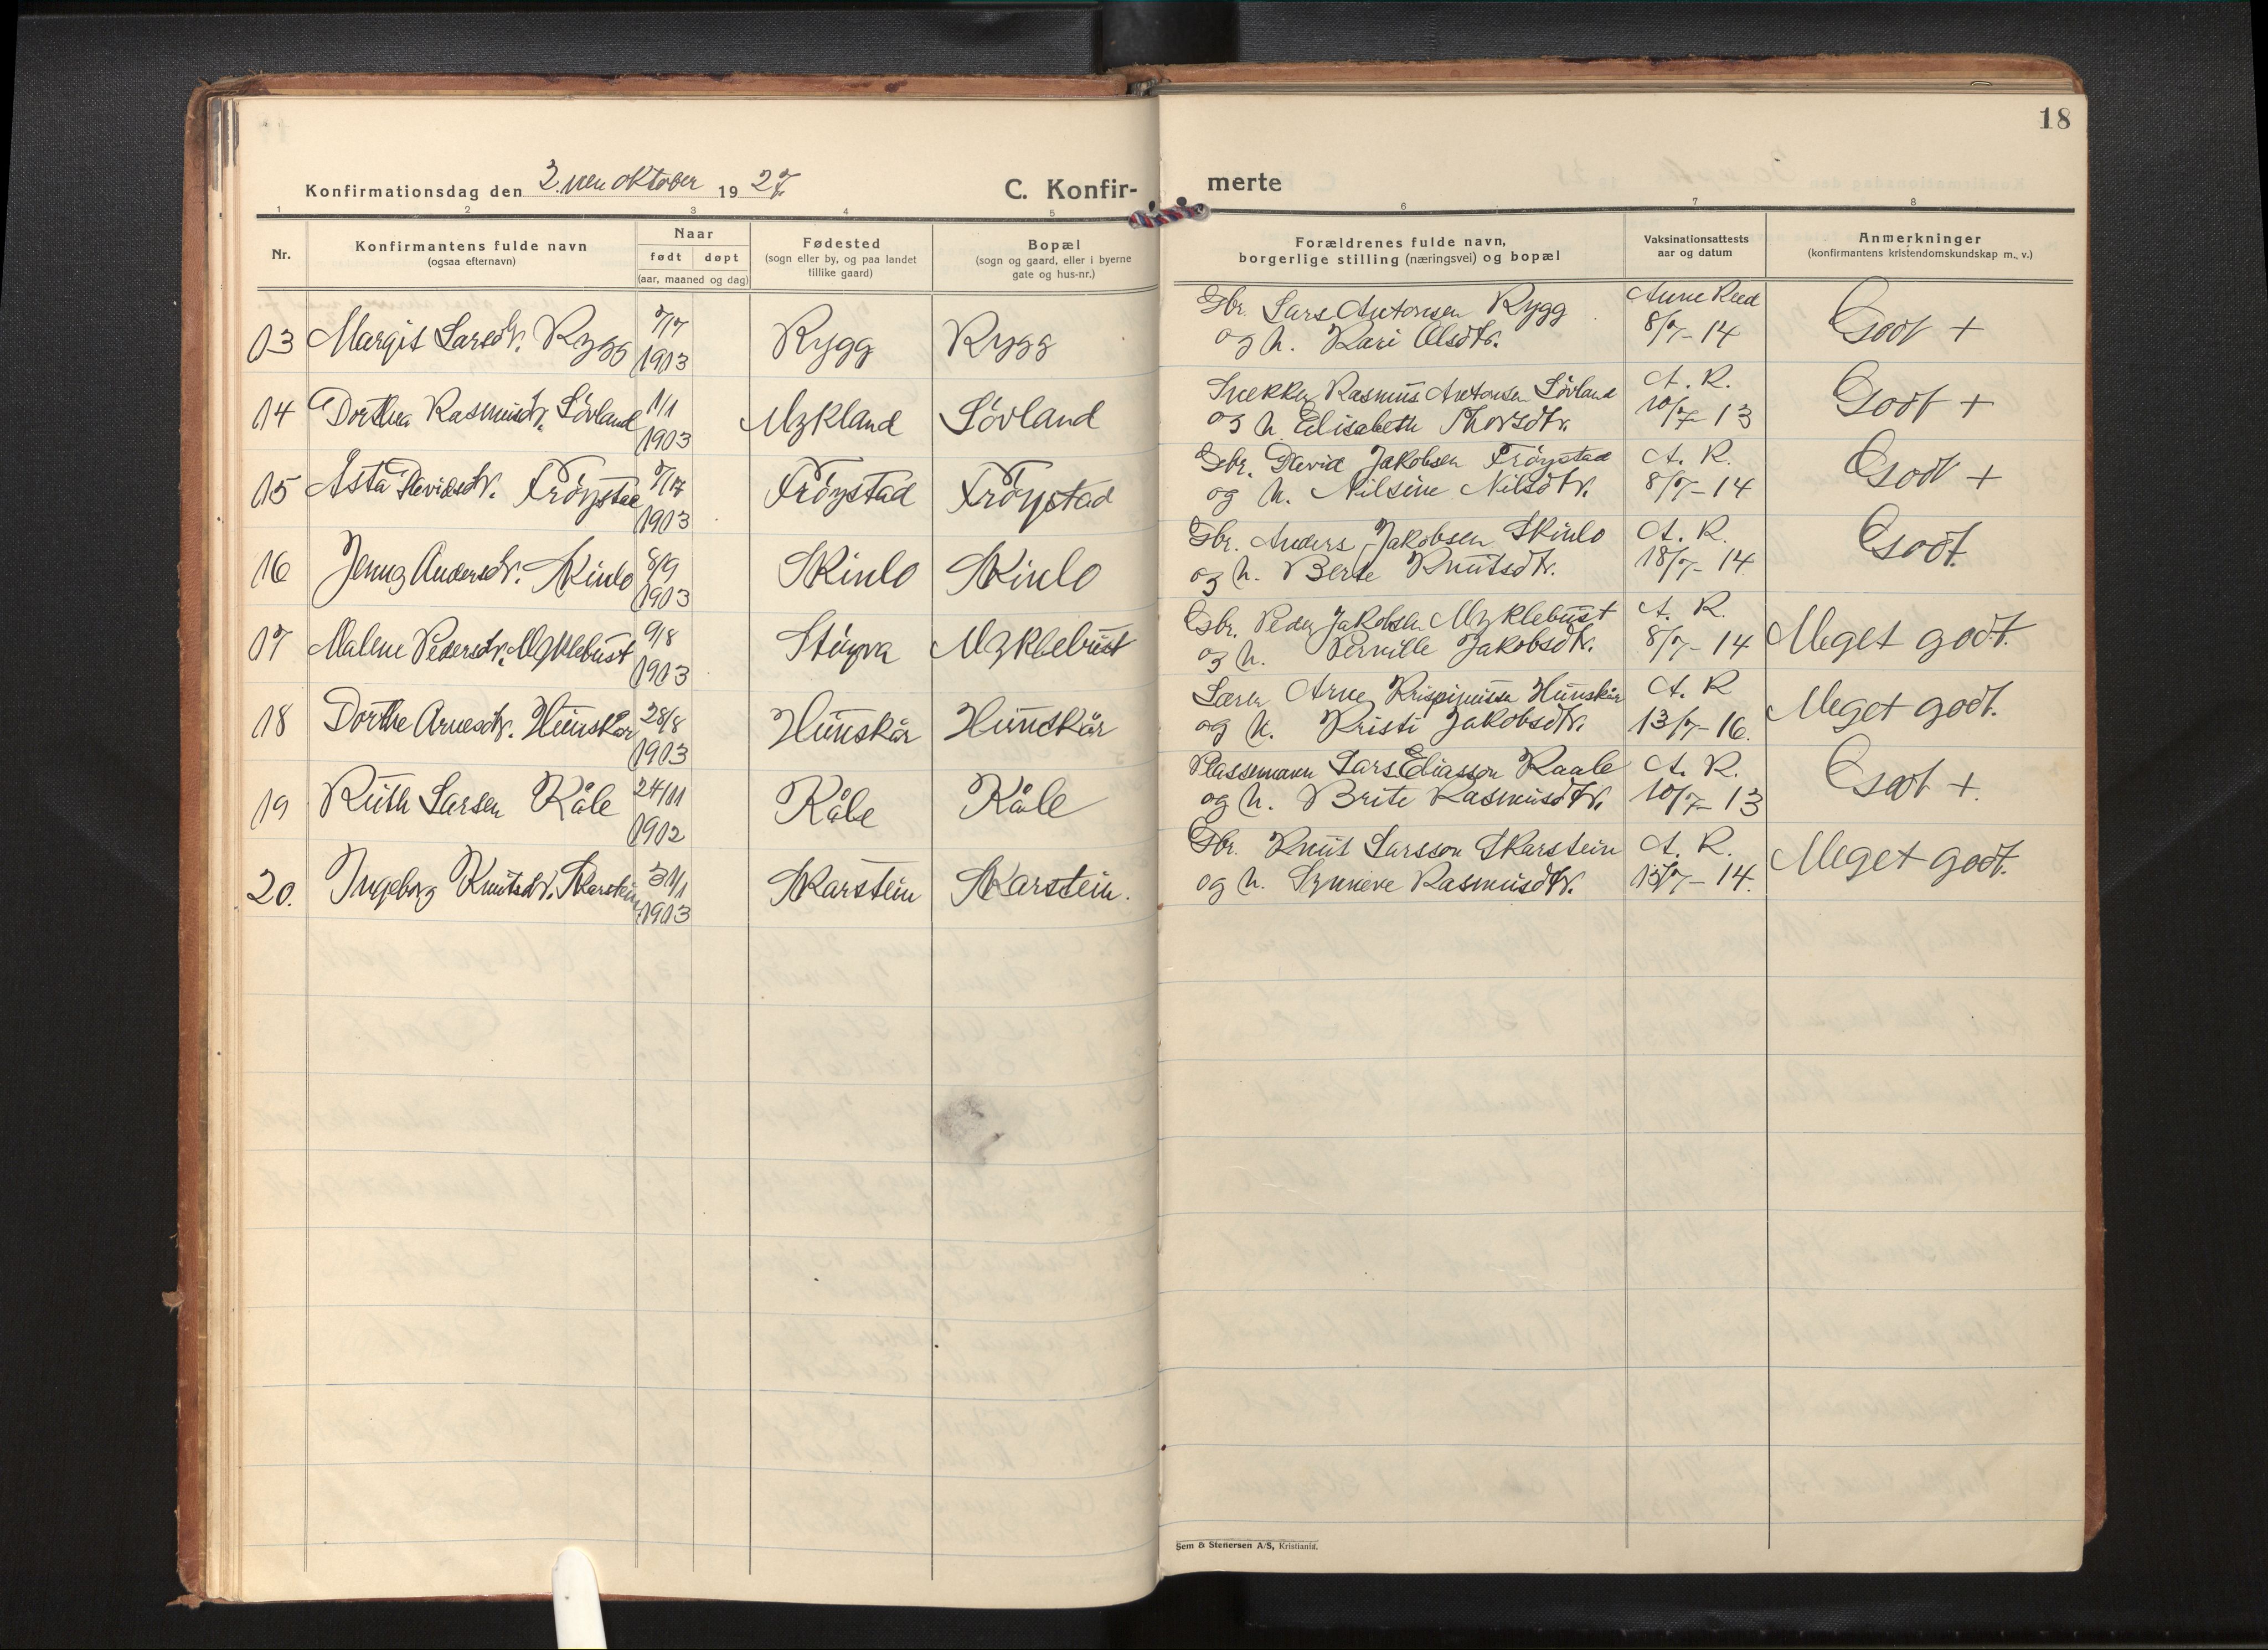 18
Konfirmationsdag den 2. nen oktober 1927
C. Konfirmerte
1 2 3 4 5 6 7 8
Nr.
Konfirmantens fulde navn
(ogsaa efternavn)
Naar
født døpt
(aar, maaned og dag)
Fødested
(sogn eller by, og paa landet
tillike gaard)
Bopæl
(sogn og gaard, eller i byerne
gate og hus-nr.)
Forældrenes fulde navn,
borgerlige stilling (næringsvei) og bopæl
Vaksinationsattests
aar og datum
Anmerkninger
(konfirmantens kristendomskundskap m. v.)
13 Margit Larsdtr. Rygg 7/7 1913 Rygg Rygg
Gbr. Lars Antonsen Rygg Anne Reed
og h. Kari Olsdtr. 8/7-14 Godt +
14 Dorthea Rasmusdtr. Lövland 1/1 1913 Mykland Lövland
Snekker Rasmus Antonsen Lövland A. R.
og h. Elisabeth Thorsdtr. 10/7-13 Godt +
15 Asta Davidsdtr. Fröystad 7/7 1913 Fröystad Fröystad
Gbr. David Jakobsen Fröystad A. R.
og h. Nilsine Nilsdtr. 8/7-14 Godt +
16 Jenny Andersdtr. Skinlo 8/9 1913 Skinlo Skinlo
Gbr. Anders Jakobsen Skinlo A. R.
og h. Berte Knutsdtr. 18/7-14 Godt.
17 Malene Pedersdtr. Myklebust 9/8 1913 Støyva Myklebust
Gbr. Peder Jakobsen Myklebust A. R.
og h. Pernille Jakobsdtr. 8/7-14 Meget godt.
18 Dorthe Arnesdtr. Hunskår 28/8 1913 Hunskår Hunskår
Lærer Arne Krispinussen Hunskår A. R
og h. Kristi Jakobsdtr. 13/7-16. Meget godt.
19 Ruth Larsen Råle 24/11 1912 Råle Råle
Plassemann Lars Eliasson Raale A. R.
og h. Brite Rasmusdtr. 10/7-13 Godt +.
20. Ingeborg Knutsdtr. Skarstein 31/1 1913 Skarstein Skarstein.
Gbr. Knut Larsson Skarstein A. R.
og h. Synneve Rasmusdtr. 13/7-14. Meget godt.
Sem & Stenersen A/S, Kristiania.